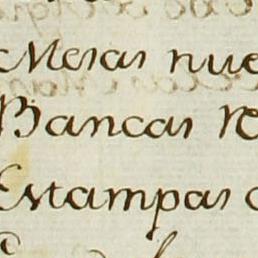 Mesas nue
Bancas re
Estampas